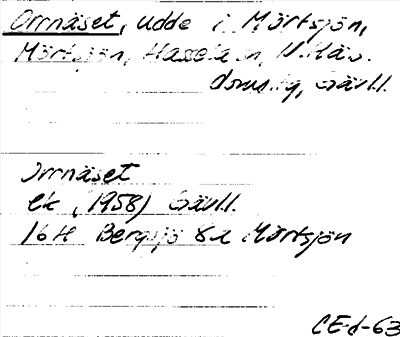 Orrnäset, udde i Mörtsjön,
Mörtsjön, Hassela sn, N. Häs.
doms.tg, Gävl.l.
Orrnäset
ek (1958) Gävl.l.
16H Bergsjö 8a Mörtsjön
CE-d-63